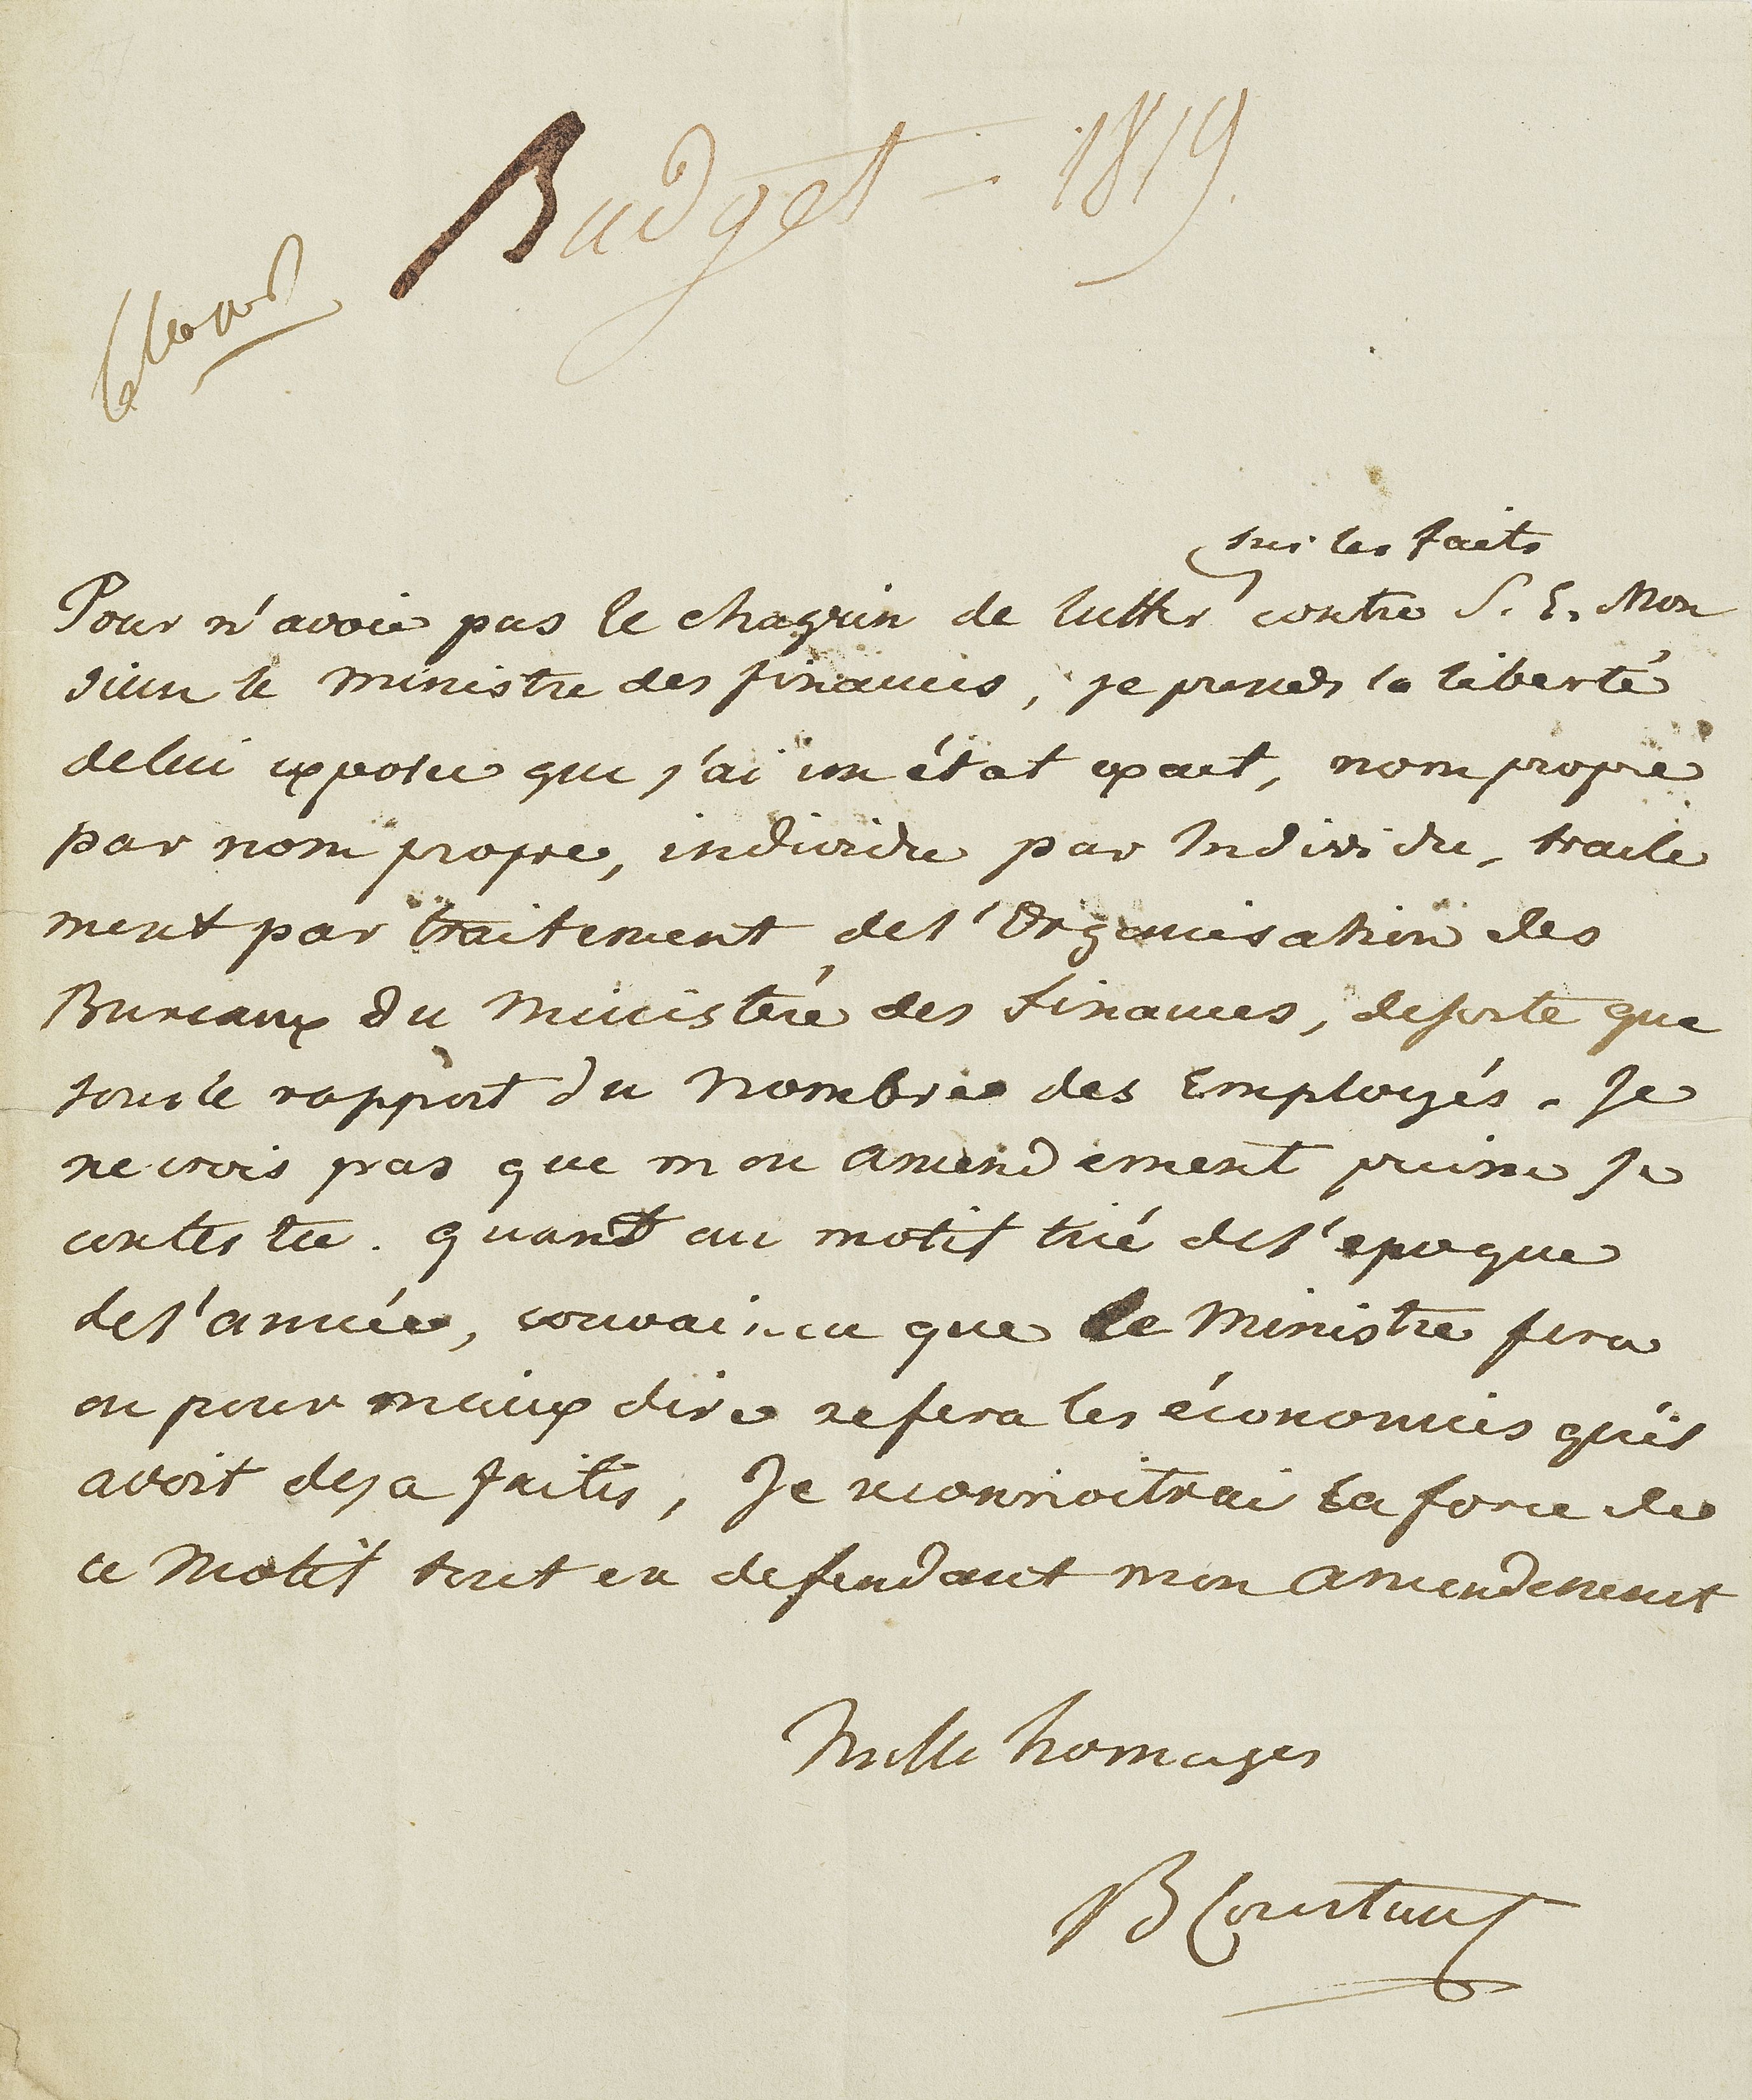 Budget - 1819.
sur les faits
Pour n'avoir pas le chagrin de lutter contre S. E. Mon
sieur le Ministre des finances, je prends la liberté
de lui exposer que j'ai un état exact, nom propre
par nom propre, individu par Individu, traite
ment par traitement de l'Organisation des
Bureaux du Ministère des finances, desorte que
sous le rapport du Nombre des Employés. Je
ne crois pas que mon amendement puisse se
contester. quant au motif tiré de l'epoque
de l'année, convaincu que le Ministre fera
ou pour mieux dire refera les économies qu'il
avoit deja faites, Je reconnoitrai la force de
ce Motif tout en defendant mon amendement
Mille homages
B Constant